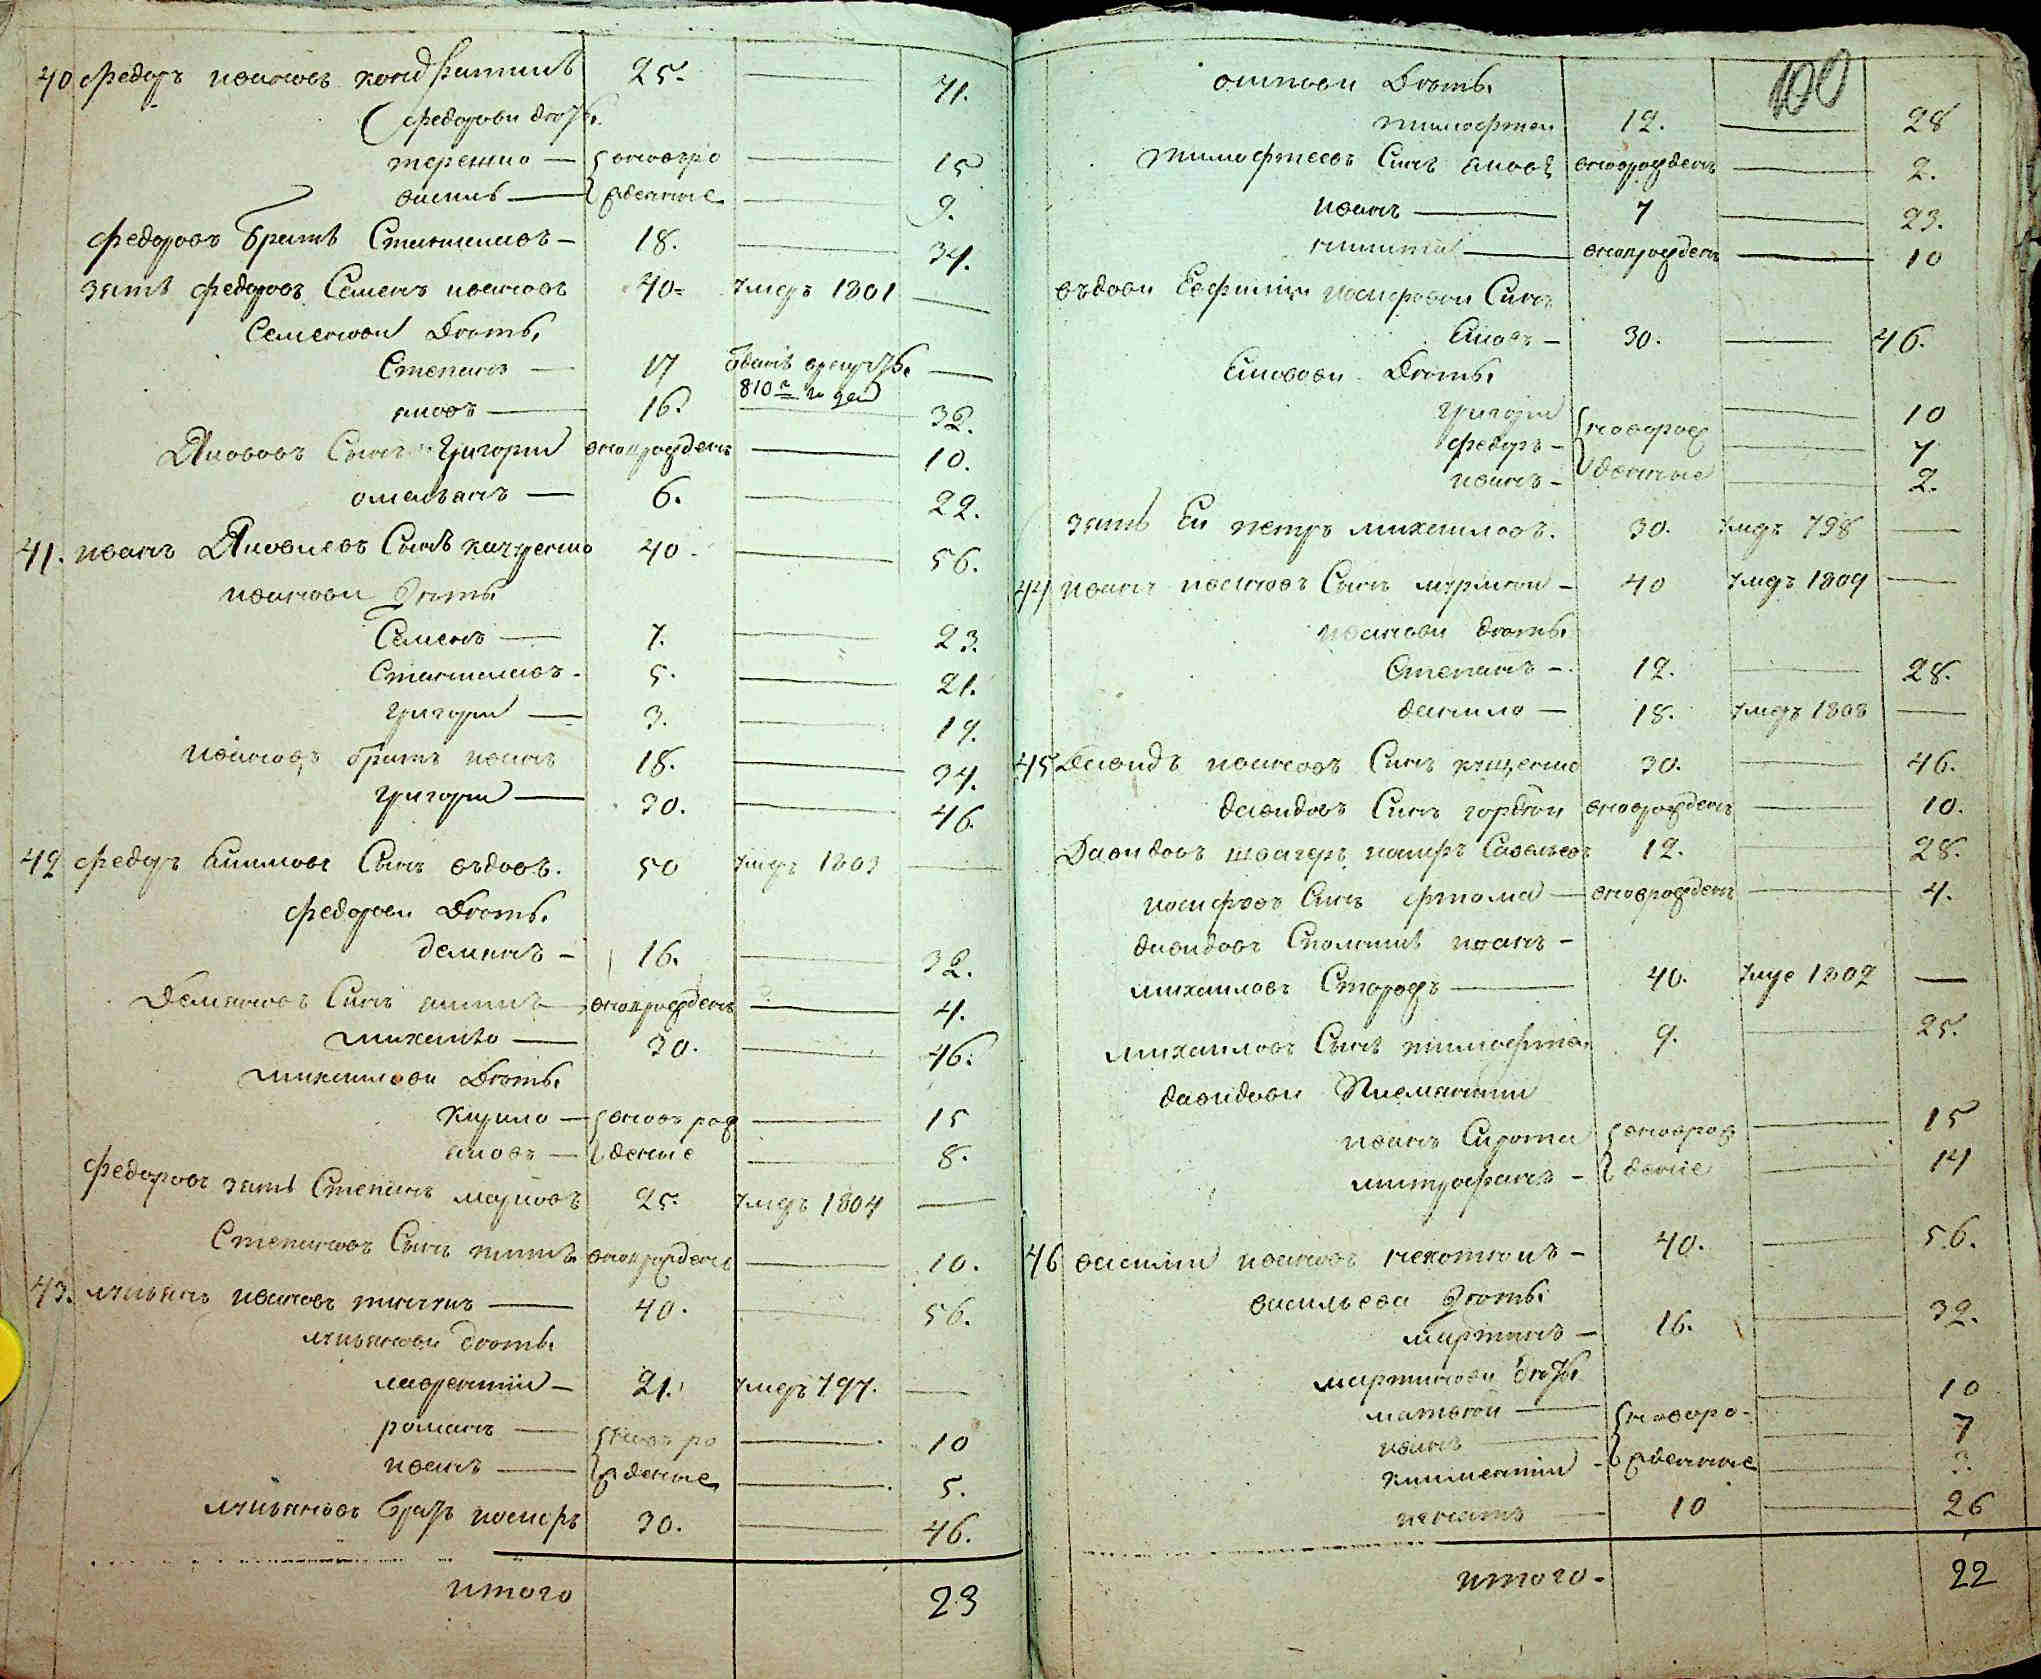 40 федоръ ивановъ 25. — 41.
федорови дети.
терешко — вновьро — 15
василь — жденные — 9.
федоровъ братъ Станиславъ — 18. — 34.
зять федоровъ Семенъ ивановъ 40 умеръ 1801 —
Семенови дети.
Степанъ — 17 810г года —
яковъ — 16. — 32.
Якововъ Сынъ григори новорожденъ — 10.
омельянъ — 6. — 22.
41. иванъ Яковлевъ Сынъ 40. — 56.
иванови дети
Семенъ — 7. — 23.
Станиславъ — 5. — 21.
григори — 3. — 19.
ивановъ братъ иванъ 18. — 34.
григори — 30. — 46.
42 федоръ Сынъ вдовъ. 50 умеръ 1803 —
федорови дети.
демянъ — 16. — 32.
демяновъ Синъ новорожденъ — 4.
михайло — 30. — 46.
михайлови дети.
кирило — вновь рож — 15
яковъ — дение — 8.
федоровъ зять Степанъ марковъ 25. умеръ 1804 —
Степановъ Сынъ титъ новорожденъ — 10.
43. лукьянъ ивановъ 40. — 56.
лукьянови дети.
лаврентии — 21. умеръ 797. —
романъ — вновь ро — 10
иванъ — ждение — 5.
лукьяновъ братъ иосифъ 30. — 46.
итого 23
100
дети.
тимофтеи 12. — 28
тимофтеевъ Синъ яковъ новорожденъ — 2.
иванъ — 7 — 23.
никита — новорожденъ — 10
вдови Евфимии иосифови Синъ
яковъ — 30. — 46.
Якови дети.
григори новорож — 10
федоръ — 7
иванъ — денные — 2.
зять Еи петръ михаиловъ. 30. умеръ 798 —
44 иванъ ивановъ Синъ — 40 умеръ 1809 —
иванови дети.
Степанъ — 12. — 28.
данило — 18. умеръ 1808 —
45 Давидъ ивановъ Синъ 30. — 46.
давидовъ Синъ гордеи новорожденъ — 10.
Давидовъ швагеръ иосифъ Савельевъ 12. — 28.
иосифовъ Синъ фтома — новорожденъ — 4.
давидовъ иванъ —
михаиловъ Сторожъ — 40. умре 1802 —
михаиловъ Синъ тимофтеи 9. — 25.
давидови Племянники
иванъ Сирота вноврож — 15
митрофанъ — дение — 14
46 василии ивановъ — 40. — 56.
васильеви дети.
мартинъ — 16. — 32.
мартинови дети.
матвеи — новоро- — 10
иванъ — 7
климентии — жденние — 3.
игнатъ — 10 — 26
итого. 22